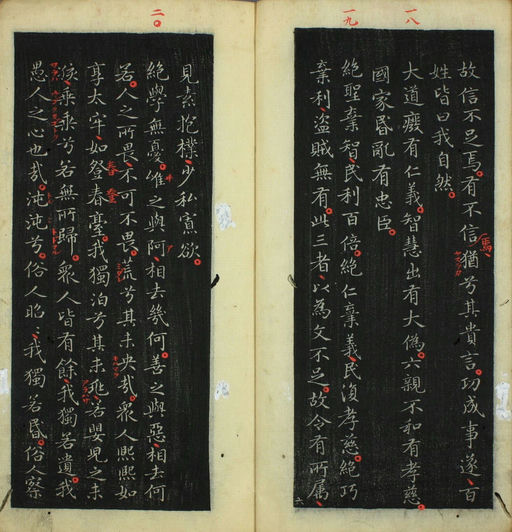 一八
故信不足焉有不信猶兮其貴言功成事遂百
焉
姓皆曰我自然
大道廢有仁義智慧出有大偽六親不和有孝慈
國家昏亂有忠臣
一九
絕聖棄智民利百倍絕仁棄義民復孝慈絕巧
棄利盜賊無有此三者以為文不足故令有所屬
六
見素抱樸少私寡欲
二〇
絕學無憂唯之與阿相去幾何善之與惡相去何
若人之所畏不可不畏荒兮其未央哉眾人熙熙如
享太牢如登春臺我獨泊兮其未兆若嬰兒之未
春登
孩乘乘兮若無所歸眾人皆有餘我獨若遺我
愚人之心也哉沌沌兮俗人昭〻我獨若昏俗人察